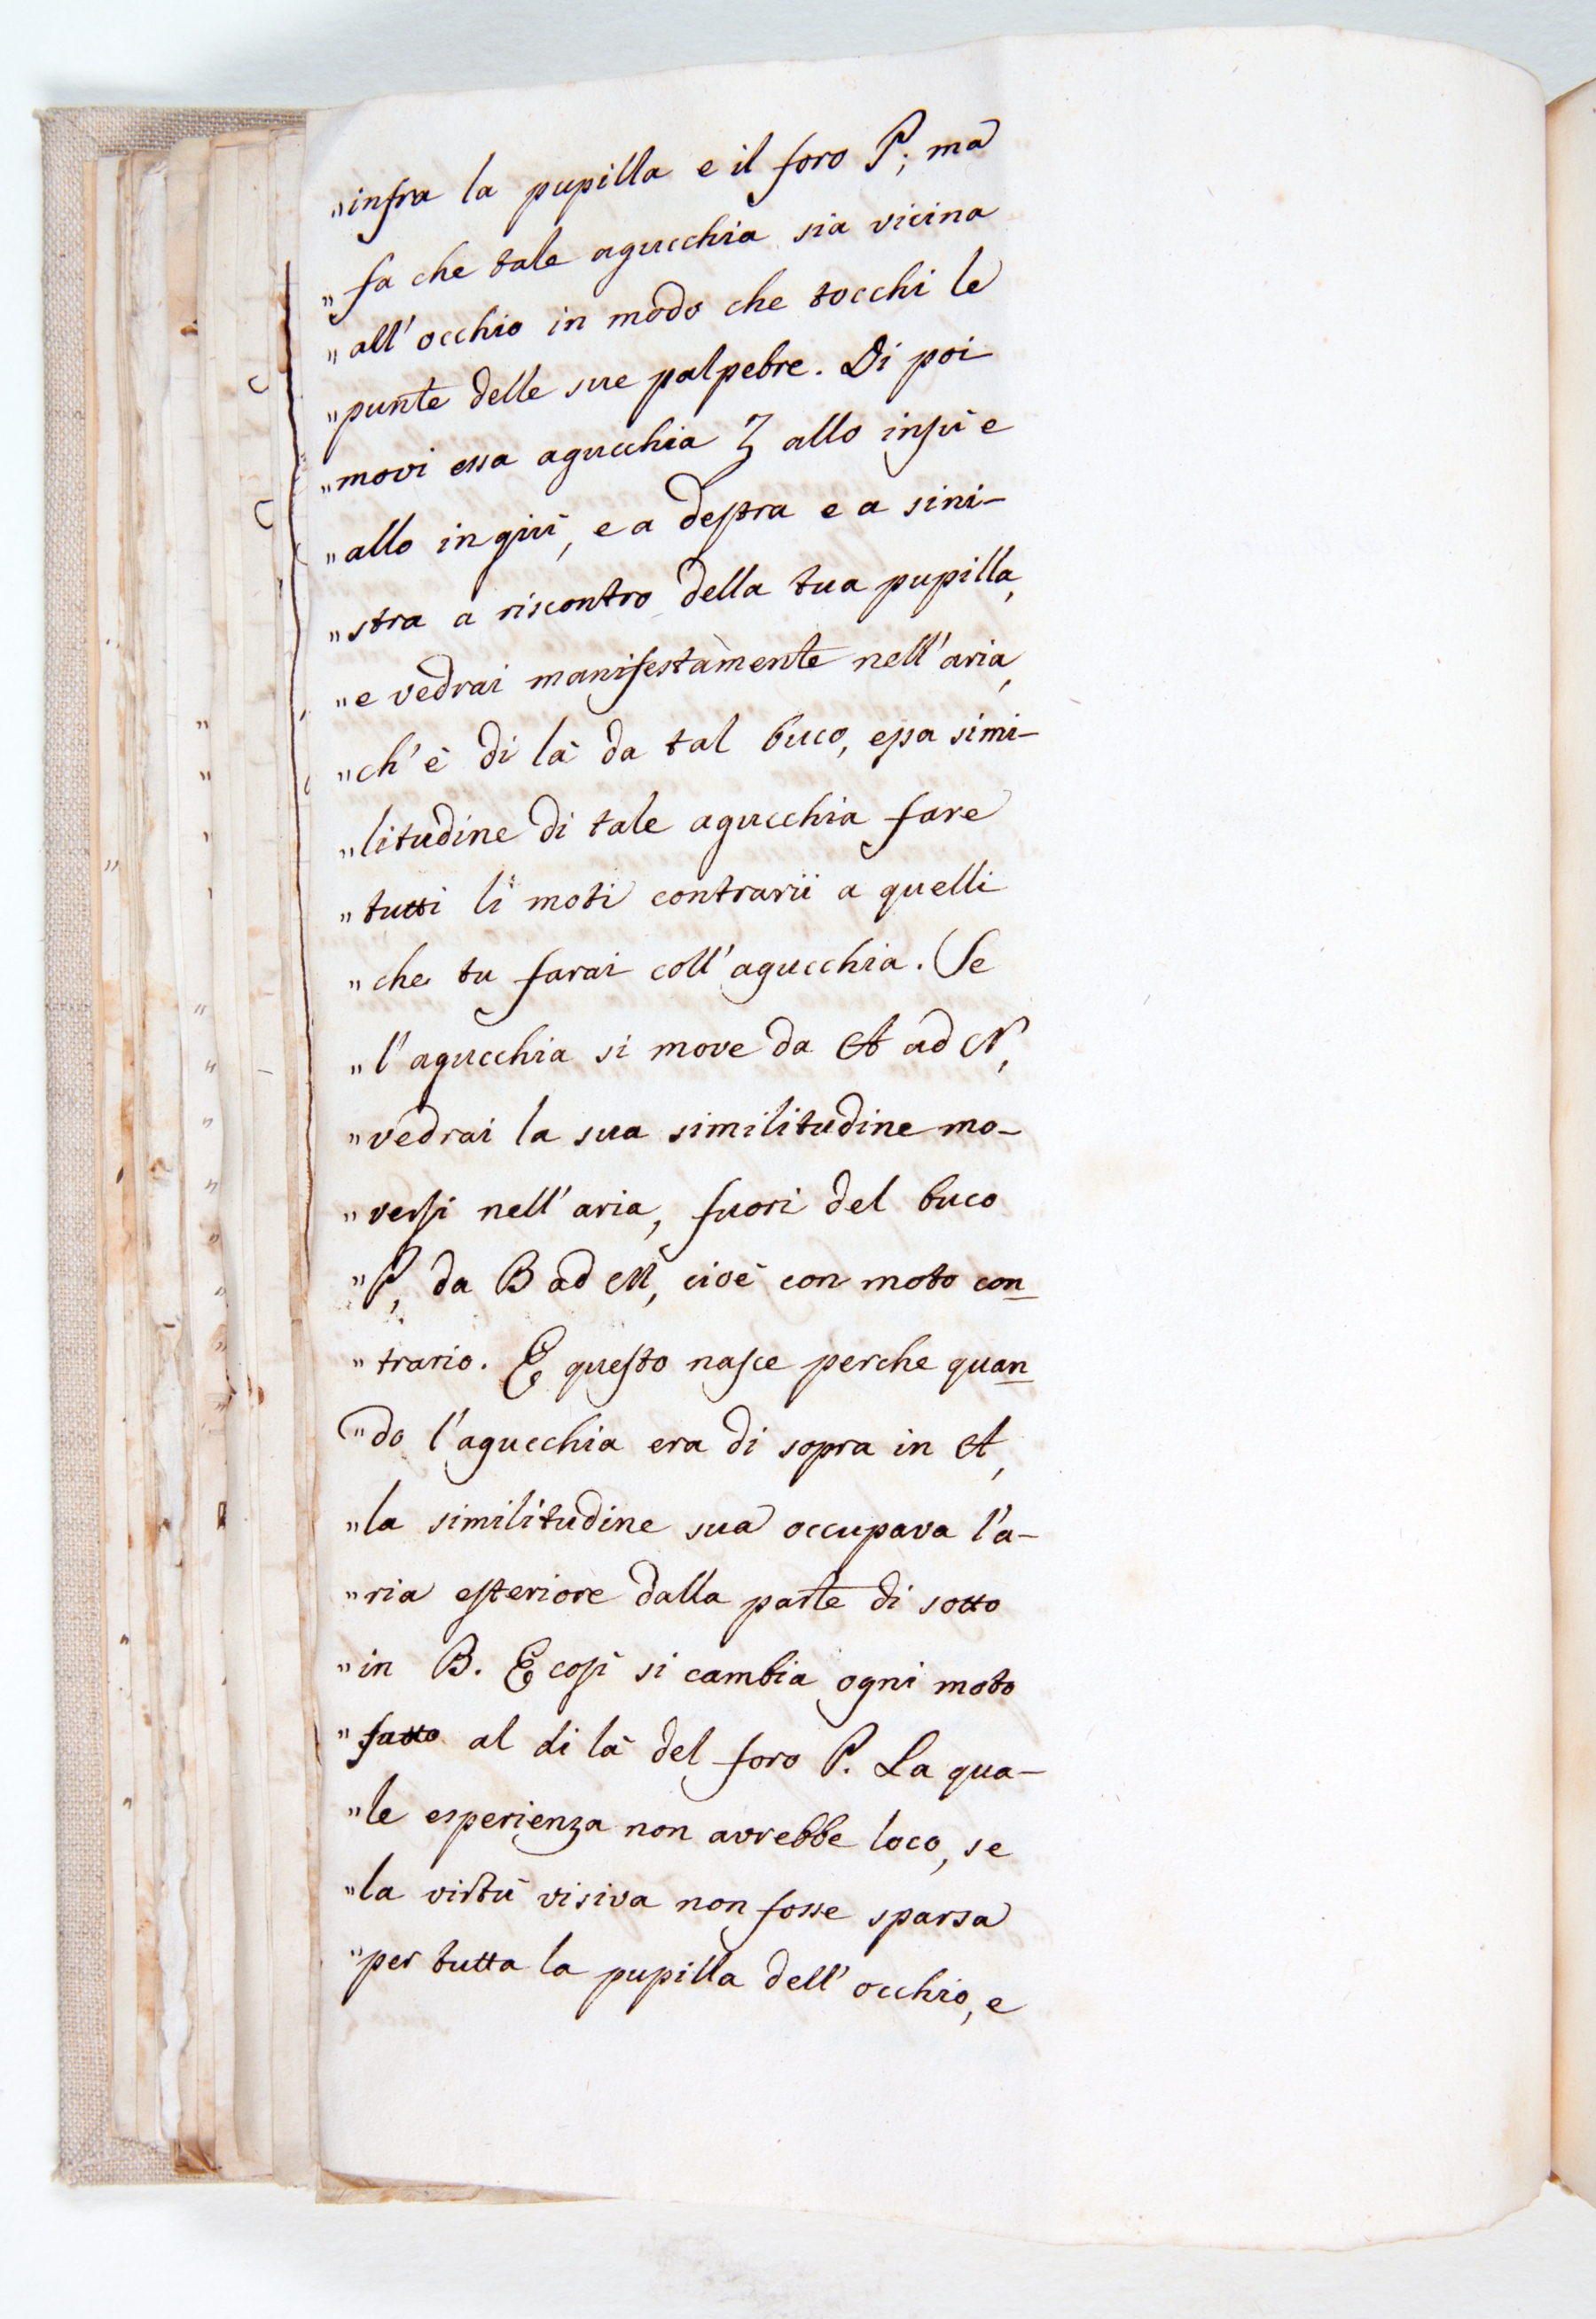 "infra la pupilla e il foro P; ma
"fa che tale agucchia sia vicina
"all'occhio in modo che tocchi le
"punte delle sue palpebre. Di poi
"movi essa agucchia Z allo insù e
"allo ingiù, e a destra e a sini-
"stra a riscontro della tua pupilla,
"e vedrai manifestamente nell'aria,
"ch'è di là da tal buco, essa simi-
"litudine di tale agucchia fare
"tutti li moti contrarii a quelli
"che tu farai coll'agucchia. Se
"l'agucchia si move da A ad N,
"vedrai la sua similitudine mo-
"versi nell'aria, fuori del buco
"P, da B ad M, cioè con moto con
"trario. E questo nasce perche quan
"do l'agucchia era di sopra in A,
"la similitudine sua occupava l'a-
"ria esteriore dalla parte di sotto
"in B. E così si cambia ogni moto
"fatto al di là del foro P. La qua-
"le esperienza non avrebbe loco, se
"la virtù visiva non fosse sparsa
"per tutta la pupilla dell'occhio, e